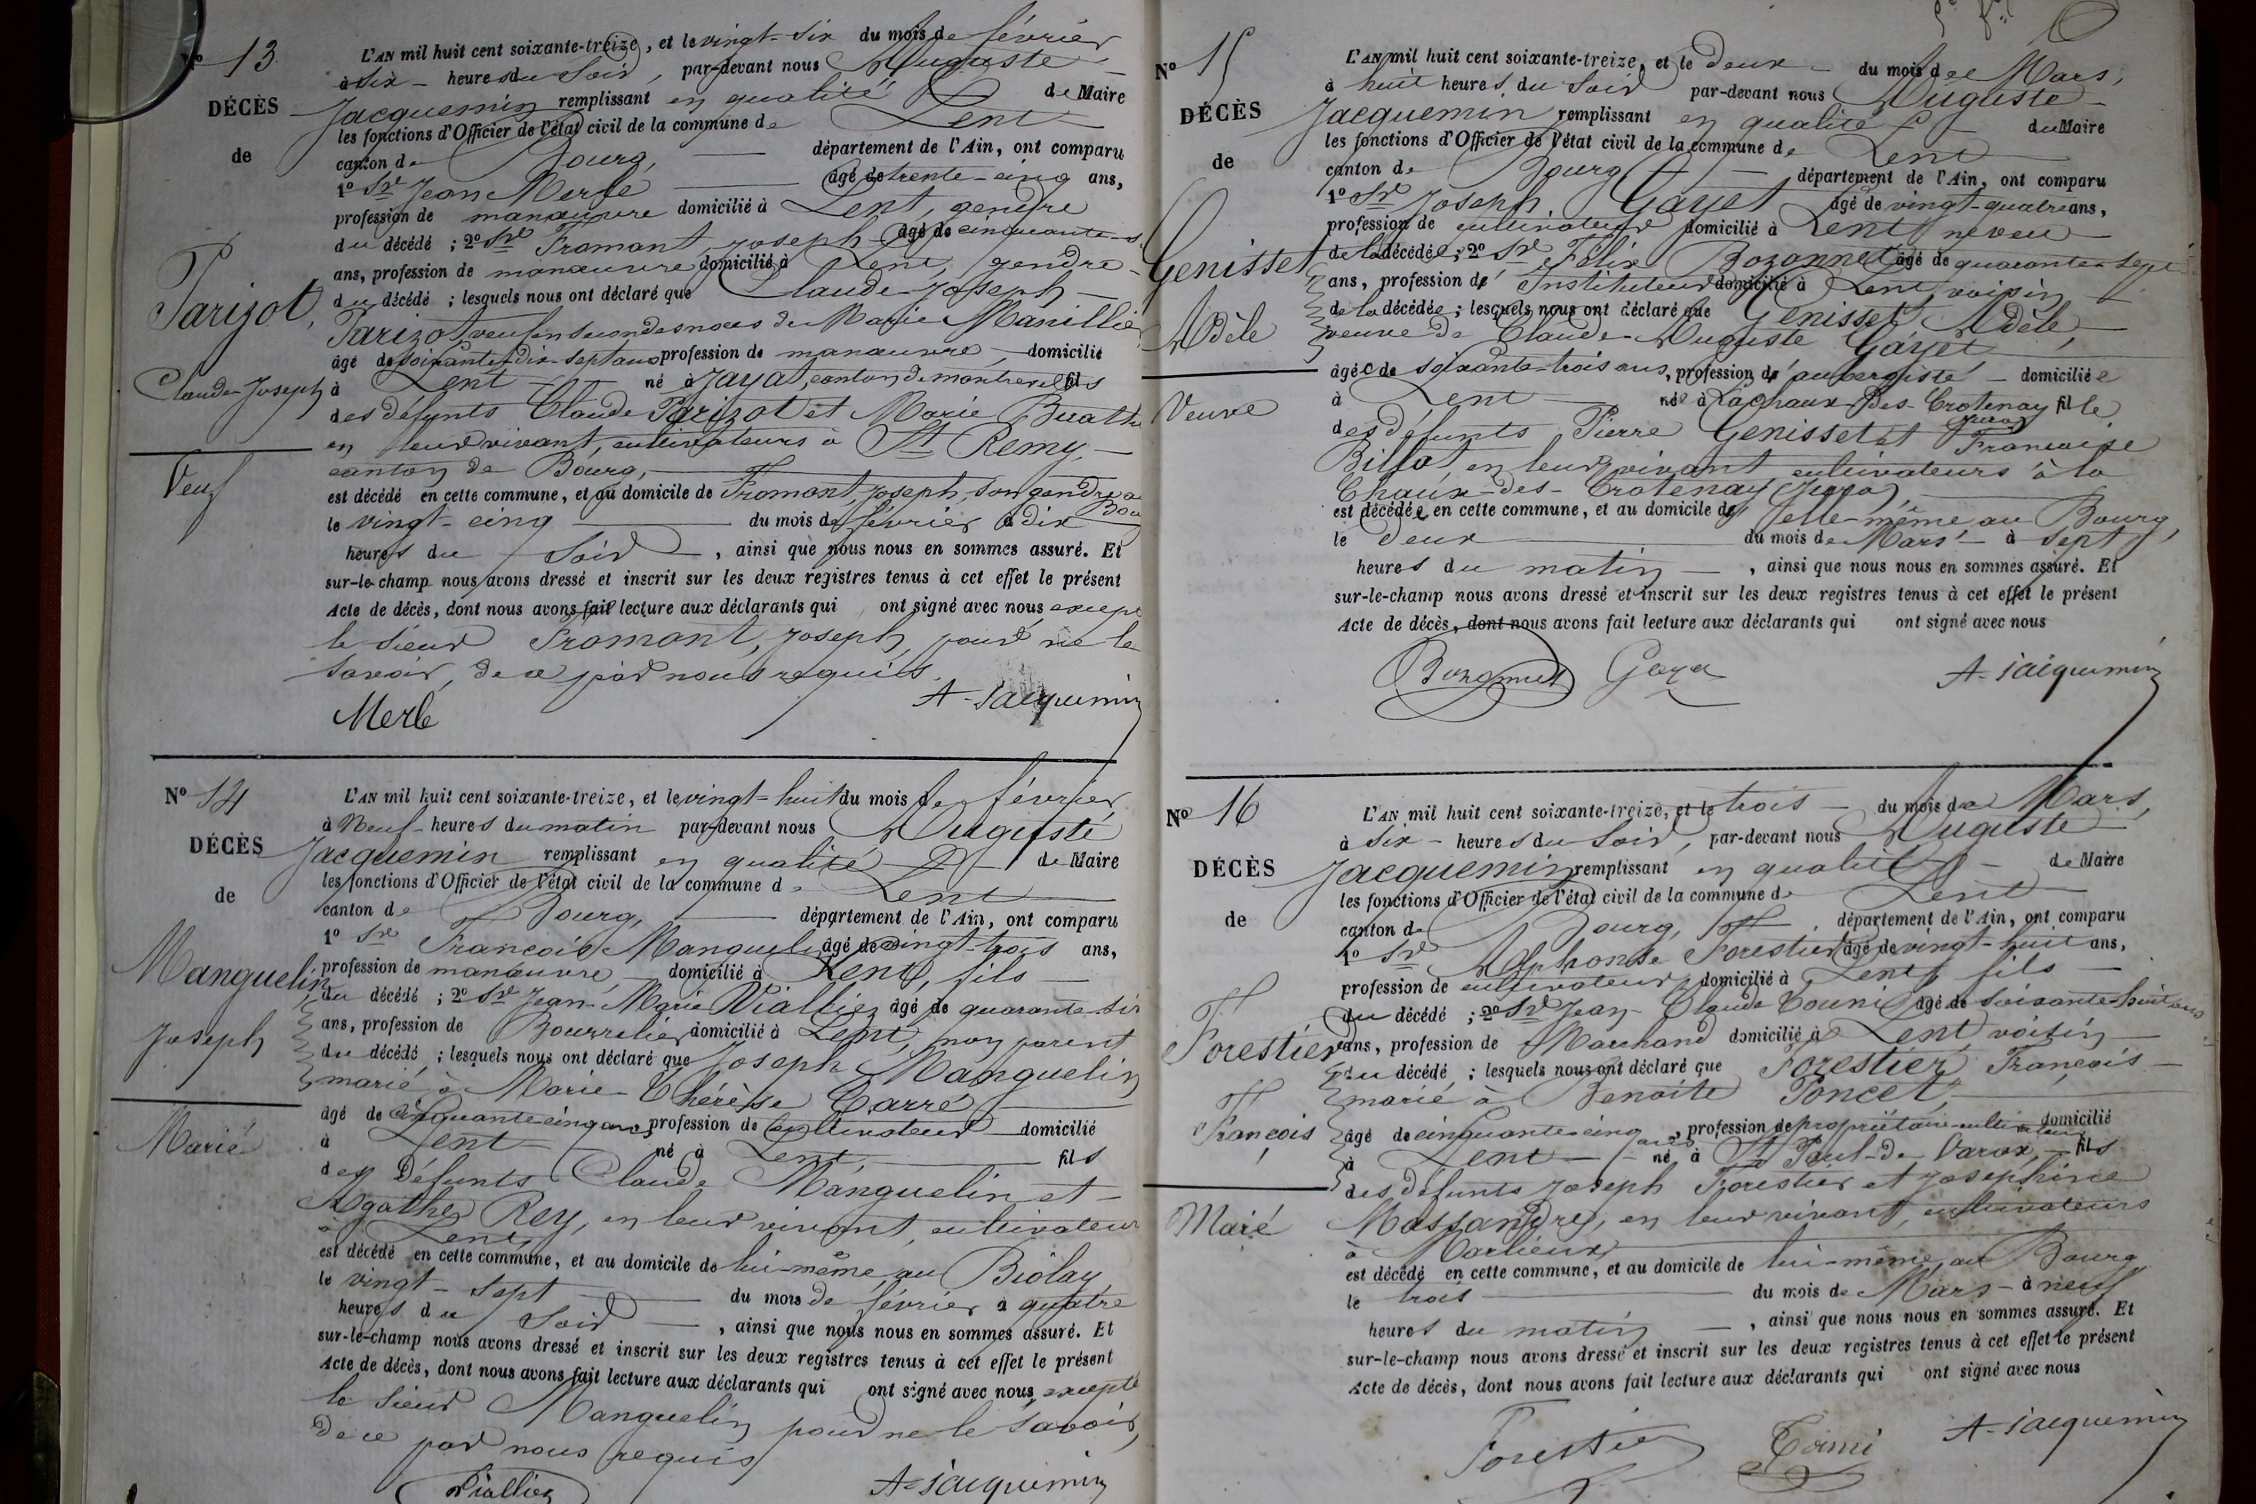 Nº 13
L'AN mil huit cent soixante-treize, et le vingt-six du mois de février
à six heures du soir, par-devant nous Auguste
Jacquemin remplissant en qualité de Maire
DÉCÈS
les fonctions d'Officier de l'état civil de la commune de Lent
de
canton de Bourg, département de l'Ain, ont comparu
1º Sr Jean Merle âgé de trente-cinq ans,
profession de manœuvre domicilié à Lent, gendre
du décédé ; 2º Sr Fromont, Joseph âgé de cinquante-
ans, profession de manœuvre domicilié à Lent, gendre
du décédé ; lesquels nous ont déclaré que Claude-Joseph
Parizot,
Parizot, veuf en secondes noces de Marie Manillier
âgé de soixante-dix-sept ans profession de manœuvre, domicilié
Claude-Joseph
à Lent né à Jayat, canton de montrevel fils
des défunts Claude Parizot et Marie Buathi
en leur vivant, cultivateurs à St Remy,
Veuf
canton de Bourg,
est décédé en cette commune, et au domicile de Fromont, Joseph, son gendre au Bourg
le vingt-cinq du mois de février à dix
heures du soir, ainsi que nous nous en sommes assuré. Et
sur-le-champ nous avons dressé et inscrit sur les deux registres tenus à cet effet le présent
Acte de décès, dont nous avons fait lecture aux déclarants qui ont signé avec nous, excepté
le sieur Fromont, Joseph, pour ne le
savoir, de ce par nous requis.
Merle A. Jacquemin
Nº 14
L'AN mil huit cent soixante-treize, et le vingt-huit du mois de février
à Neuf heures du matin par-devant nous Auguste
DÉCÈS
Jacquemin remplissant en qualité de Maire
les fonctions d'Officier de l'état civil de la commune de Lent
de
canton de Bourg, département de l'Ain, ont comparu
1º Sr François Manguelin âgé de vingt-trois ans,
Manguelin,
profession de manœuvre, domicilié à Lent, fils
du décédé ; 2º Sr Jean-Marie Viallier âgé de quarante-six
Joseph
ans, profession de Bourrelier domicilié à Lent, non parent
du décédé ; lesquels nous ont déclaré que Joseph Manguelin
marié à Marie-Thérèse Carré
âgé de cinquante-cinq ans, profession de Cultivateur domicilié
Marié
à Lent né à Lent, fils
des Défunts Claude Manguelin et
Agathe Rey, en leur vivant, cultivateur
à Lent,
est décédé en cette commune, et au domicile de lui-même au Biolay
le vingt-sept du mois de février à quatre
heures du soir, ainsi que nous nous en sommes assuré. Et
sur-le-champ nous avons dressé et inscrit sur les deux registres tenus à cet effet le présent
Acte de décès, dont nous avons fait lecture aux déclarants qui ont signé avec nous, excepté
le sieur Manguelin pour ne le savoir,
de ce par nous requis
Viallier A. Jacquemin
Nº 15
L'AN mil huit cent soixante-treize, et le deux du mois de Mars,
à huit heures du soir par-devant nous Auguste
DÉCÈS
Jacquemin remplissant en qualité du Maire
les fonctions d'Officier de l'état civil de la commune de Lent
de
canton de Bourg département de l'Ain, ont comparu
1º Sr Joseph Gayet âgé de vingt-quatre ans,
profession de cultivateur domicilié à Lent, neveu
Genisset
de la décédée ; 2º Sr Félix Bozonnet âgé de quarante-sept
ans, profession d'Instituteur domicilié à Lent, voisin
de la décédée ; lesquels nous ont déclaré que Genisset, Adèle,
Adèle
veuve de Claude-Auguste Gayet
âgée de soixante-trois ans, profession d'aubergiste domiciliée
Veuve
à Lent née à Lachaux-des-Crotenay (Jura) fille
des défunts Pierre Genisset et Francoise
Billot, en leur vivant cultivateurs à la
Chaux-des-Crotenay (Jura),
est décédée en cette commune, et au domicile d'elle-même au Bourg,
le deux du mois de Mars à sept
heures du matin, ainsi que nous nous en sommes assuré. Et
sur-le-champ nous avons dressé et inscrit sur les deux registres tenus à cet effet le présent
Acte de décès, dont nous avons fait lecture aux déclarants qui ont signé avec nous
Bozonnet A. Jacquemin
Nº 16
L'AN mil huit cent soixante-treize, et le trois du mois de Mars,
à six heures du soir, par-devant nous Auguste
DÉCÈS
Jacquemin remplissant en qualité de Maire
les fonctions d'Officier de l'état civil de la commune de Lent
de
canton de Bourg, département de l'Ain, ont comparu
1º Sr Alphonse Forestier âgé de vingt-huit ans,
profession de cultivateur, domicilié à Lent, fils
du décédé ; 2º Sr Jean-Claude âgé de soixante-huit ans
Forestier
ans, profession de Marchand domicilié à Lent, voisin
du décédé ; lesquels nous ont déclaré que Forestier François
marié à Benoite Poncet,
François
âgé de cinquante-cinq ans, profession de propriétaire-cultivateur domicilié
à Lent né à St Paul-de-Varax, fils
des défunts Joseph Forestier et Josephine
Marié
Massandre, en leur vivant, cultivateurs
à Marlieux
est décédé en cette commune, et au domicile de lui-même, au Bourg
le trois du mois de Mars à neuf
heures du matin, ainsi que nous nous en sommes assuré. Et
sur-le-champ nous avons dressé et inscrit sur les deux registres tenus à cet effet le présent
Acte de décès, dont nous avons fait lecture aux déclarants qui ont signé avec nous
Forestier A. Jacquemin